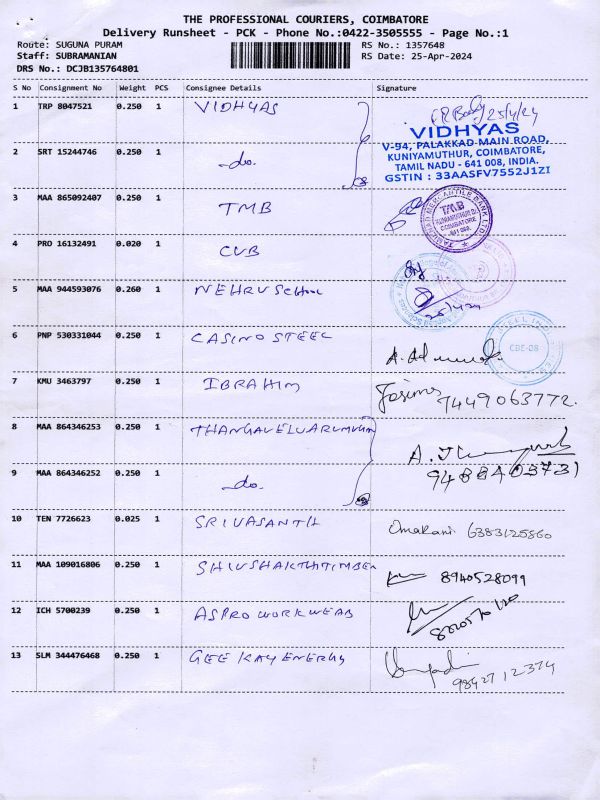 THE PROFESSIONAL COURIERS, COIMBATORE
Delivery Runsheet - PCK - Phone No.:0422-3505555 - Page No.:1
Route: SUGUNA PURAM RS No.: 1357648
Staff: SUBRAMANIAN RS Date: 25-Apr-2024
DRS No.: DCJB135764801
S No Consignment No Weight PCS Consignee Details Signature
1 TRP 8047521 0.250 1 VIDHYAS 25/4/24
VIDHYAS
V-94, PALAKKAD MAIN ROAD,
KUNIYAMUTHUR, COIMBATORE,
TAMIL NADU - 641 008, INDIA.
GSTIN : 33AASFV7552J1ZI
2 SRT 15244746 0.250 1 -do-
3 MAA 865092407 0.250 1 TMB
TAMILNAD MERCANTILE BANK LTD.
TMB
COIMBATORE
4 PRO 16132491 0.020 1 CUB
5 MAA 944593076 0.260 1 NEHRU School
25/4/24
6 PNP 530331044 0.250 1 CASINO STEEL
CBE-08
7 KMU 3463797 0.250 1 IBRAHIM
7449063772.
8 MAA 864346253 0.250 1 THANGAVELUARUMUGAM
9 MAA 864346252 0.250 1 -do-
9488403731
10 TEN 7726623 0.025 1 SRIVASANTH Omakani 6383125860
11 MAA 109016806 0.250 1 SHIVSHAKTHITIMBER 8940528099
12 ICH 5700239 0.250 1 ASPRO WORKWEAR
13 SLM 344476468 0.250 1 GEE KAY ENERGY
98427 12374